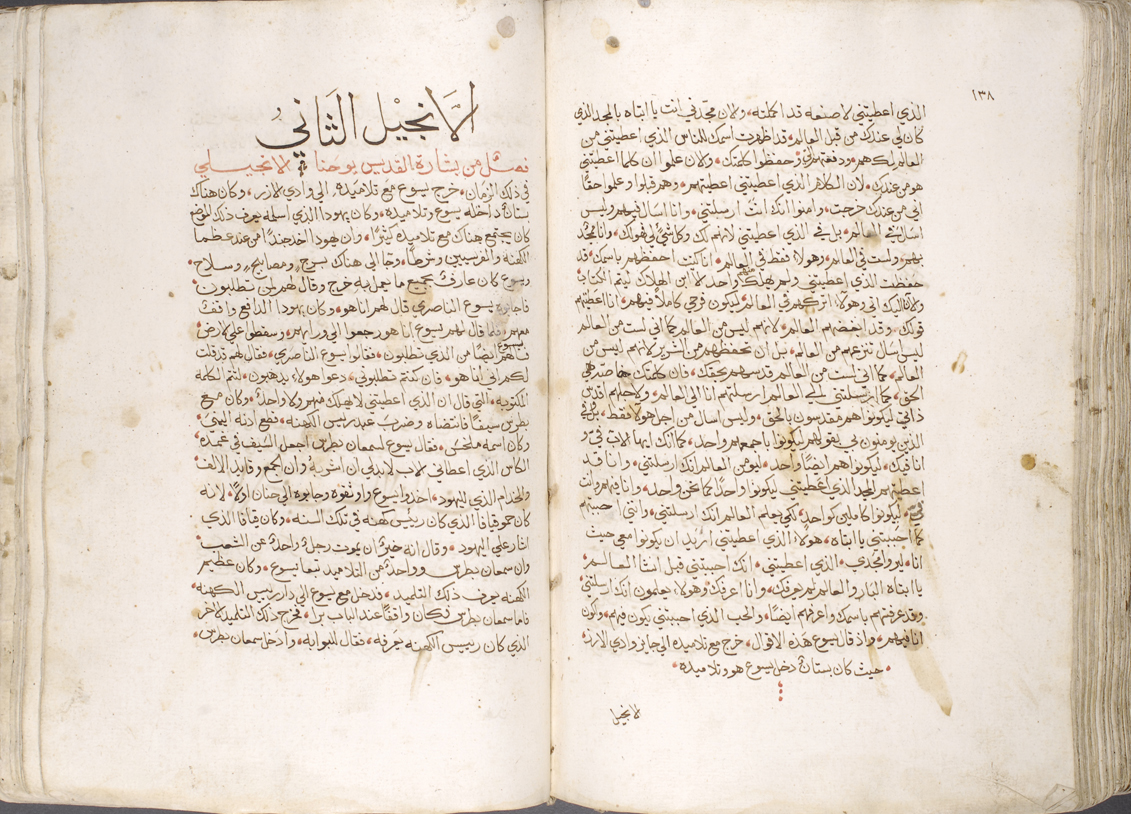 ١٣٨
الذي اعطيتني لاصنعه قد اكملته، ولان مجدني انت يا ابتاه بالمجد الذي
كان لي عندك من قبل العالم، قد اظهرت اسمك للناس الذي اعطيتني من
العالم لك هم، ودفعتهم لي، وحفظوا كلمتك، ولان علموا ان كلما اعطيتني
هو من عندك، لان الكلام الذي اعطيتني اعطيتهم، وهم قبلوا وعلموا حقًا
اني من عندك خرجت، وامنوا انك انت ارسلتني، وانا اسال فيهم وليس
اسال في العالم، بل في الذي اعطيتني لانهم لك وكل شي لي فهو لك، وانا ممجد
بهم، ولست في العالم، وهولا فقط في العالم، انا كنت احفظهم باسمك، قد
حفظت الذي اعطيتني ولم يهلك منهم واحد الا ابن الهلاك ليتم الكتاب،
ولان اليك اتي وهولا، اتركهم في العالم، ليكون فرحي كاملًا فيهم، انا اعطيتهم
قولك، وقد ابغضهم العالم، لانهم ليس من العالم كما اني لست من العالم
ليس اسال تنزعهم من العالم، بل ان تحفظهم من الشرير لانهم ليس من
العالم، كما اني لست من العالم قدسهم بحقك، فان كلمتك خاصة هي
الحق، كما ارسلتني الى العالم ارسلتهم انا الى العالم، ولاجلهم اقدس
ذاتي ليكونوا هم مقدسون بالحق، وليس اسال من اجل هولا فقط، بل في
الذين يومنون بي بقولهم ليكونوا باجمعهم واحد، كما انك ايها الاب في و
انا فيك، ليكونوا هم ايضًا واحد، ليومن العالم انك ارسلتني، وانا قد
اعطيتهم المجد الذي اعطيتني ليكونوا واحدًا كما نحن واحد، وانا فيهم وانت
في، ليكونوا كاملين كواحد، لكي يعلم العالم انك ارسلتني، وانني احببتهم
كما احببتني يا ابتاه، هولا الذي اعطيتني اريد ان يكونوا معي حيث
انا، ليروا مجدي، الذي اعطيتني، انك احببتني قبل انشا العالم
يا ابتاه البار والعالم لم يعرفك، وانا اعرفك وهولا، يعلمون انك ارسلتني
وقد عرفتهم باسمك واعرفهم ايضًا، والحب الذي احببتني يكون فيهم، واكون
انا فيهم، واذ قال يسوع هذه الاقوال، خرج مع تلاميذه الى جايز وادي الارز
حيث كان بستانٌ دخل يسوع هو وتلاميذه،
لانجيل
الانجيل الثاني
فصل من بشارة القديس يوحنا الانجيلي
في ذلك الزمان، خرج يسوع مع تلاميذه الى وادي لارز، وكان هناك
بستانٌ داخله يسوع وتلاميذه، وكان يهودا الذي اسلمه يعرف ذلك الموضع
كان يجتمع هناك مع تلاميذه كثيرًا، وان يهودا اخذ جندًا من عند عظما
الكهنه والفريسيين وشرطًا، وجا الى هناك بسرج، ومصابيح وسلاح،
ويسوع كان عارفٌ بجميع ما يحل به خرج وقال لهم لمن تطلبون،
فاجابوه يسوع الناصري قال لهم انا هو، وكان يهودا الدافع واقفٌ
معهم، فلما قال لهم يسوع انا هو رجعوا الى وراهم، وسقطوا على الارض
فسالهم يسوع ايضًا من الذي تطلبون، فقالوا يسوع الناصري، فقال لهم قد قلت
لكم اني انا هو، فان كنتم تطلبوني، دعوا هولا، يذهبون، لتتم الكلمه
المكتوبه، التي قال ان الذي اعطيتني لا يهلك منهم ولا واحد، وكان مع
بطرس سيفًا فانتضاه وضرب عبد رييس الكهنه، فقطع اذنه اليمنى،
وكان اسمه ملخس، فقال يسوع لسمعان بطرس اجعل السيف في غمده
الكاس الذي اعطاني الاب لابد لي ان اشربه وان الجمع وقايد الالف
والخدام الذي لليهود، اخذوا يسوع واوثقوه وجابوه الى حنان اولًا، لانه
كان حمو قيافا الذي كان رييس كهنه في تلك السنه، وكان قيافا الذي
اشار على اليهود، وقال انه خيرٌ ان يموت رجلٌ واحدٌ عن الشعب
وان سمعان بطرس وواحدٌ من التلاميذ تبعا يسوع، وكان عظيم
الكهنه يعرف ذلك التلميذ، فدخل مع يسوع الى دار رييس الكهنه،
فاما سمعان بطرس فكان واقفًا عند الباب برا، فخرج ذلك التلميذ لاخر
الذي كان رييس الكهنه يعرفه، فقال للبوابه، وادخل سمعان بطرس،